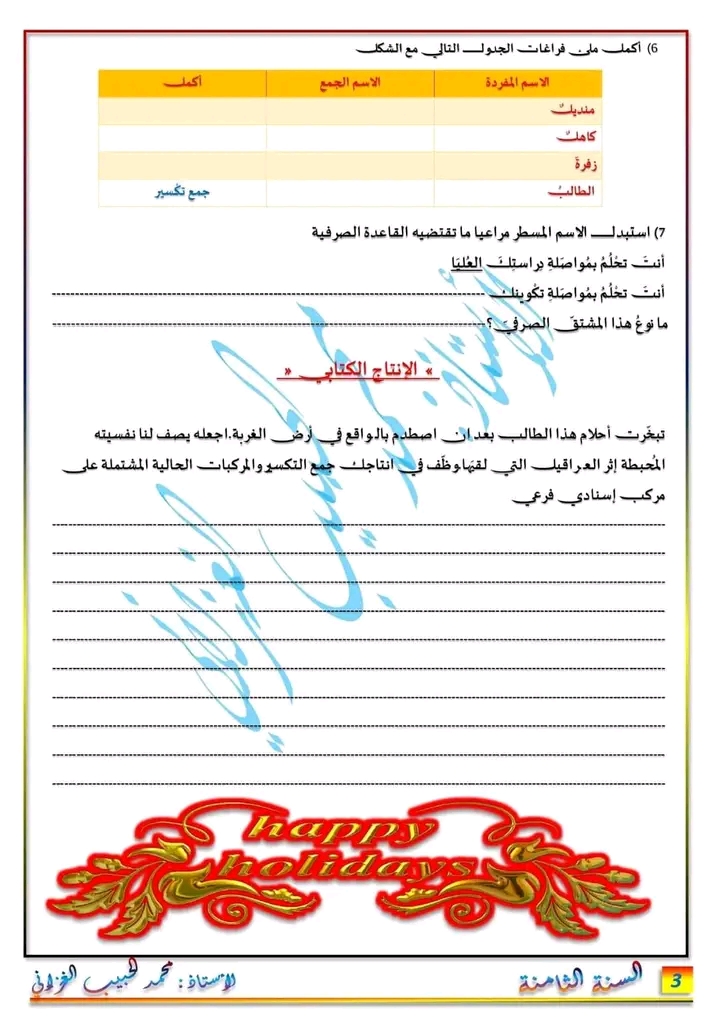 6) أكمل ملئ فراغات الجدول التالي مع الشكل
الاسم المفردة الاسم الجمع أكمل
منديلٌ
كاهلٌ
زفرةً
الطالبُ جمع تكْسير
7) استبدل الاسم المسطر مراعيا ما تقتضيه القاعدة الصرفية
أنتَ تحْلُمُ بمُواصَلةِ دِراستِكَ العُليَا
أنتَ تحْلُمُ بمُواصَلةِ تكْوينك
ما نوعُ هذا المشتقّ الصرفيّ ؟
» الإنتاج الكتابي «
تبخّرت أحلام هذا الطالب بعد ان اصطدم بالواقع في أرض الغربة.اجعله يصف لنا نفسيته
المُحبطة إثر العراقيل التي لقيَها وظّف في انتاجك جمع التكسير والمركبات الحالية المشتملة على
مركب إسنادي فرعي
happy
holidays
3 السنة الثامنة الأستاذ : محمد الحبيب الغزاني